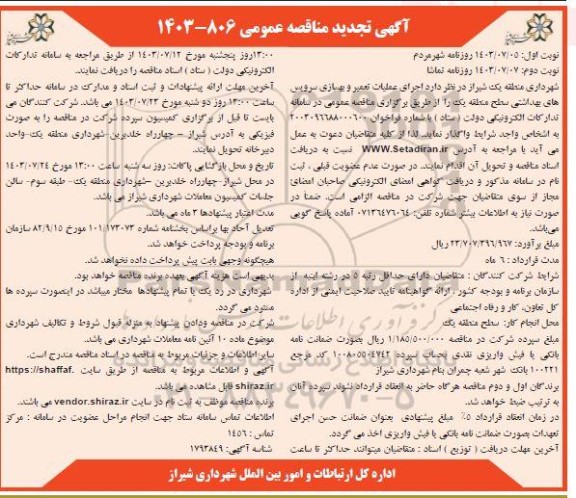 آگهی تجدید مناقصه عمومی ۸۰۶-۱۴۰۳
نوبت اول: ۱۴۰۳/۰۷/۰۵ روزنامه شهرمردم
نوبت دوم: ۱۴۰۳/۰۷/۰۷ روزنامه تماشا
شهرداری منطقه یک شیراز در نظر دارد اجرای عملیات تعمیر و بهسازی سرویس
های بهداشتی سطح منطقه یک را از طریق برگزاری مناقصه عمومی در سامانه
تدارکات الکترونیکی دولت (ستاد) با شماره فراخوان ۲۰۰۳۰۹۶۶۸۸۰۰۰۶۰۰
به اشخاص واجد شرایط واگذار نماید. لذا از کلیه متقاضیان دعوت به عمل
می آید با مراجعه به آدرس WWW.Setadiran.ir نسبت به دریافت
اسناد مناقصه و تحویل آن اقدام نمایند. در صورت عدم عضویت قبلی ، ثبت
نام در سامانه مذکور و دریافت گواهی امضای الکترونیکی صاحبان امضای
مجاز از سوی متقاضیان جهت شرکت در مناقصه الزامی است. ضمنا در
صورت نیاز به اطلاعات بیشتر شماره تلفن: ۰۷۱۳۶۴۷۶۰۶۴ آماده پاسخ گویی
می‌باشد.
مبلغ برآورد: ۲۳/۷۰۷/۳۹۶/۹۶۷ ریال
مدت قرارداد : ۶ ماه
شرایط شرکت کنندگان : متقاضیان دارای حداقل رتبه ۵ در رشته ابنیه از
سازمان برنامه و بودجه کشور ، ارائه گواهینامه تایید صلاحیت ایمنی از اداره
کل تعاون، کار و رفاه اجتماعی
محل انجام کار: سطح منطقه یک
مبلغ سپرده شرکت در مناقصه ۱/۱۸۵/۵۰۰/۰۰۰ ریال بصورت ضمانت نامه
بانکی یا فیش واریزی نقدی بحساب سپرده ۱۰۰۸۰۵۵۰۴۷۴۲ کد مرجع
۱۰۰۲۲۱ بانک شهر شعبه چمران بنام شهرداری شیراز
برندگان اول و دوم مناقصه هرگاه حاضر به انعقاد قرارداد نشوند سپرده آنان
به ترتیب ضبط خواهد شد.
در زمان انعقاد قرارداد ۵٪ مبلغ پیشنهادی بعنوان ضمانت حسن اجرای
تعهدات بصورت ضمانت نامه بانکی یا فیش واریزی اخذ می گردد.
آخرین مهلت دریافت ( توزیع ) اسناد : متقاضیان میتوانند حداکثر تا ساعت
۱۳:۰۰روز پنجشنبه مورخ ۱۴۰۳/۰۷/۱۲ از طریق مراجعه به سامانه تدارکات
الکترونیکی دولت (ستاد ) اسناد مناقصه را دریافت نمایند.
آخرین مهلت ارائه پیشنهادات و ثبت اسناد و مدارک در سامانه حداکثر تا
ساعت ۱۳:۰۰ روز دو شنبه مورخ ۱۴۰۳/۰۷/۲۳ می باشد. شرکت کنندگان می
بایست تا قبل از برگزاری کمیسیون سپرده شرکت در مناقصه را به صورت
فیزیکی به آدرس شیراز – چهارراه خلدبرین-شهرداری منطقه یک-واحد
دبیرخانه تحویل نمایند.
تاریخ و محل بازگشایی پاکات: روز سه شنبه ساعت ۱۳:۰۰ مورخ ۱۴۰۳/۰۷/۲۴
در محل شیراز-چهارراه خلدبرین –شهرداری منطقه یک- طبقه سوم- سالن
جلسات کمیسیون معاملات شهرداری شیراز می باشد.
مدت اعتبار پیشنهادها ۳ ماه می باشد.
تعدیل آحاد بها براساس بخشنامه شماره ۱۰۱/۱۷۳۰۷۳ مورخ ۸۲/۹/۱۵ سازمان
برنامه و بودجه پرداخت خواهد شد.
هیچگونه وجهی بابت پیش پرداخت داده نخواهد شد.
بدیهی است هزینه آگهی بعهده برنده مناقصه خواهد بود.
شهرداری در رد یک یا تمام پیشنهادها مختار میباشد در اینصورت سپرده ها
مسترد می گردد.
شرکت در مناقصه ودادن پیشنهاد به منزله قبول شروط و تکالیف شهرداری
موضوع ماده ۱۰ آئین نامه معاملات شهرداری می باشد.
سایر اطلاعات و جزئیات مربوط به مناقصه در اسناد مناقصه مندرج است.
آگهی و اطلاعات مربوط به مناقصه از طریق سایت https://shaffaf.
shiraz.ir قابل مشاهده می باشد.
برنده مناقصه موظف به ثبت نام در سایت vendor.shiraz.ir می باشند.
اطلاعات تماس سامانه ستاد جهت انجام مراحل عضویت در سامانه : مرکز
تماس : ۱۴۵۶
شناسه آگهی: ۱۷۹۳۸۴۹
اداره کل ارتباطات و امور بین الملل شهرداری شیراز